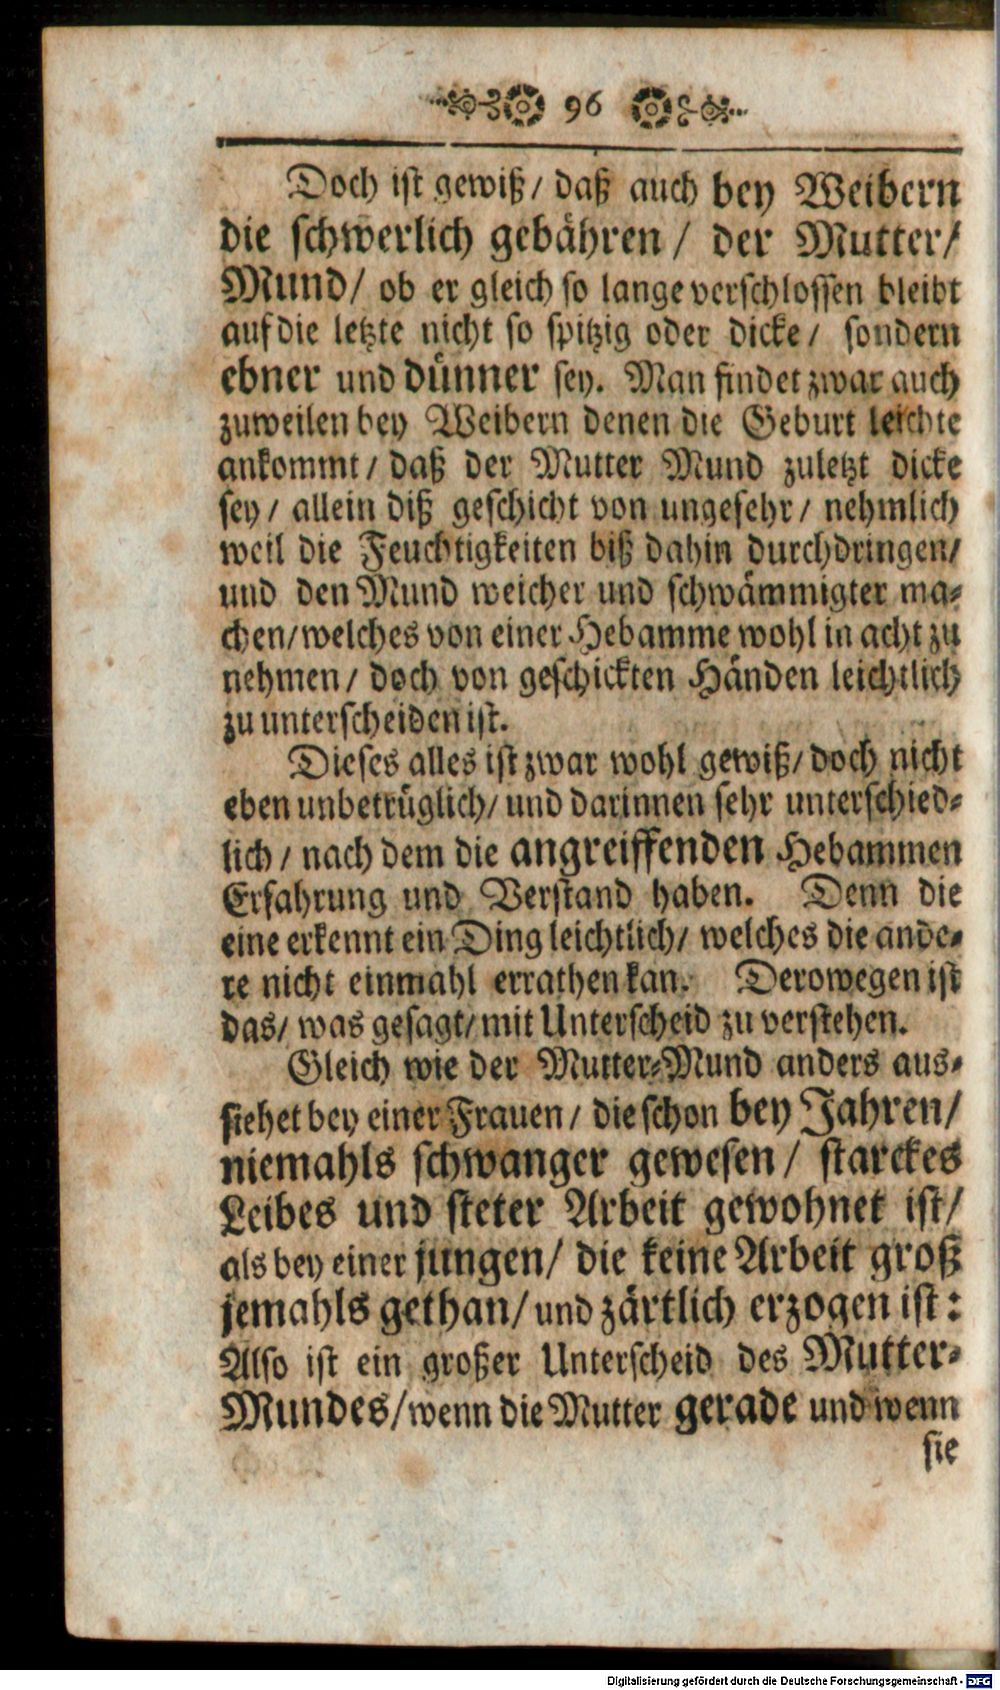 96
Doch ist gewiß/ daß auch bey Weibern
die schwerlich gebähren/ der Mutter/
Mund/ ob er gleich so lange verschlossen bleibt
auf die letzte nicht so spitzig oder dicke/ sondern
ebner und dünner sey. Man findet zwar auch
zuweilen bey Weibern denen die Geburt leichte
ankommt/ daß der Mutter Mund zuletzt dicke
sey/ allein diß geschicht von ungefehr/ nehmlich
weil die Feuchtigkeiten biß dahin durchdringen/
und den Mund weicher und schwämmigter ma-
chen/ welches von einer Hebamme wohl in acht zu
nehmen/ doch von geschickten Händen leichtlich
zu unterscheiden ist.
Dieses alles ist zwar wohl gewiß/ doch nicht
eben unbetrüglich/ und darinnen sehr unterschied-
lich/ nach dem die angreiffenden Hebammen
Erfahrung und Verstand haben. Denn die
eine erkennt ein Ding leichtlich/ welches die ande-
re nicht einmahl errathen kan. Derowegen ist
das/ was gesagt/ mit Unterscheid zu verstehen.
Gleich wie der Mutter-Mund anders aus-
siehet bey einer Frauen/ die schon bey Jahren/
niemahls schwanger gewesen/ starckes
Leibes und steter Arbeit gewohnet ist/
als bey einer jungen/ die keine Arbeit groß
jemahls gethan/ und zärtlich erzogen ist:
Also ist ein großer Unterscheid des Mutter-
Mundes/ wenn die Mutter gerade und wenn
sie
Digitalisierung gefördert durch die Deutsche Forschungsgemeinschaft - DFG